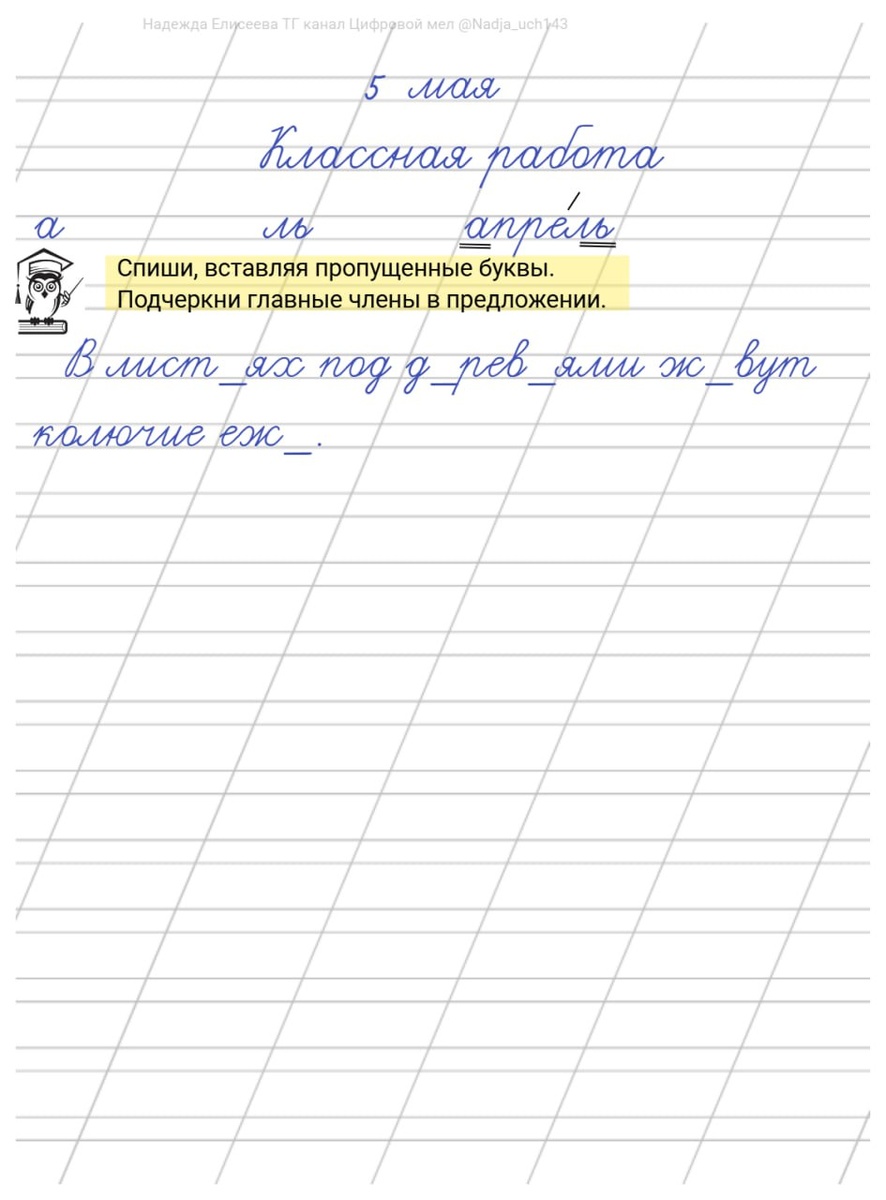 Надежда Елисеева ТГ канал Цифровой мел @Nadja_uch143
5 мая
Классная работа
а ль апрель
Спиши, вставляя пропущенные буквы.
Подчеркни главные члены в предложении.
В лист_ях под д_рев_ями ж_вут
колючие еж_.